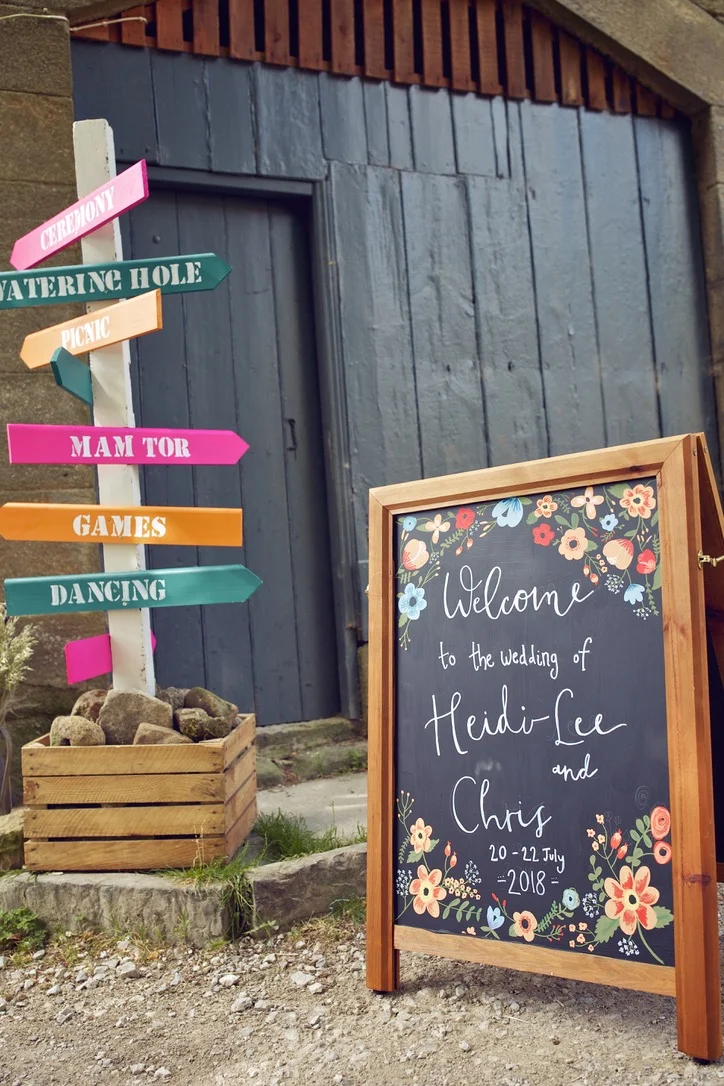 CEREMONY
WATERING HOLE
PICNIC
MAM TOR
GAMES
DANCING
Welcome
to the wedding of
Heidi-Lee
and
Chris
20-22 July
-2018-